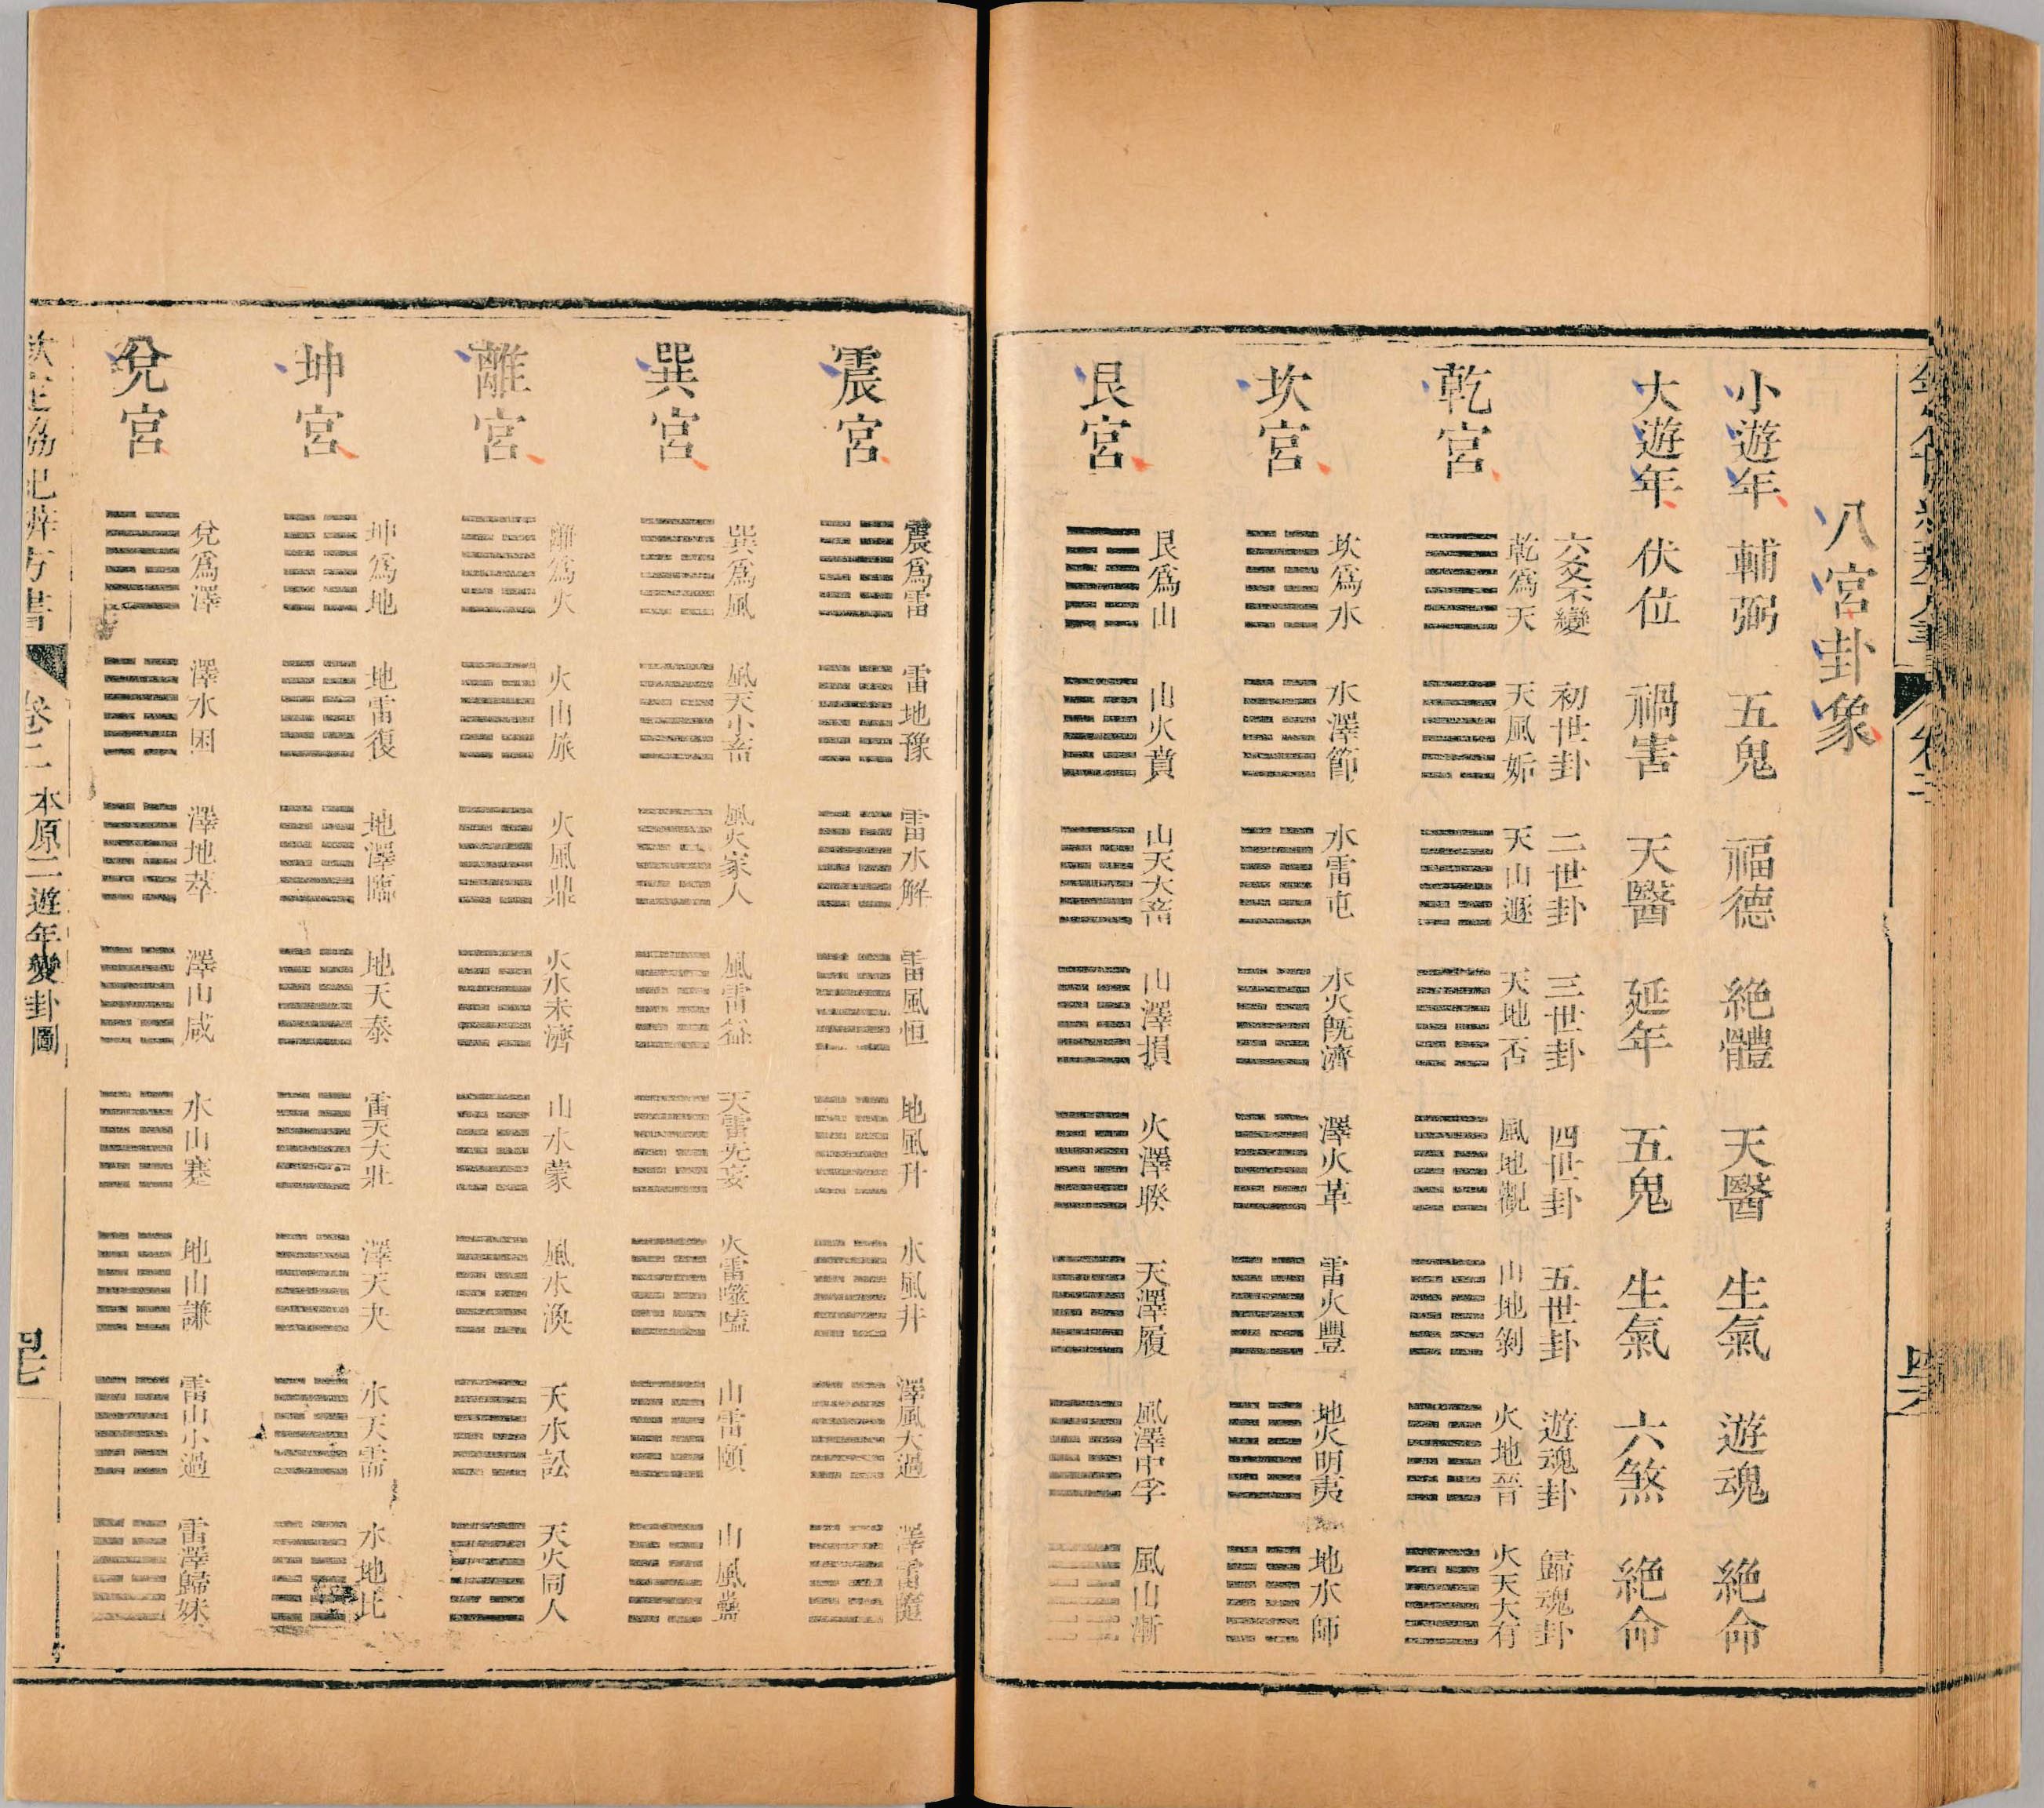 八宮卦象
小遊年 輔弼 五鬼 福德 絶體 天醫 生氣 遊魂 絶命
大遊年 伏位 禍害 天醫 延年 五鬼 生氣 六煞 絶命
六爻不變 初世卦 二世卦 三世卦 四世卦 五世卦 遊魂卦 歸魂卦
乾宮 乾爲天 天風姤 天山遯 天地否 風地觀 山地剝 火地晉 火天大有
坎宮 坎爲水 水澤節 水雷屯 水火旣濟 澤火革 雷火豐 地火明夷 地水師
艮宮 艮爲山 山火賁 山天大畜 山澤損 火澤睽 天澤履 風澤中孚 風山漸
震宮 震爲雷 雷地豫 雷水解 雷風恒 地風升 水風井 澤風大過 澤雷隨
巽宮 巽爲風 風天小畜 風火家人 風雷益 天雷无妄 火雷噬嗑 山雷頤 山風蠱
離宮 離爲火 火山旅 火風鼎 火水未濟 山水蒙 風水渙 天水訟 天火同人
坤宮 坤爲地 地雷復 地澤臨 地天泰 雷天大壯 澤天夬 水天需 水地比
兌宮 兌爲澤 澤水困 澤地萃 澤山咸 水山蹇 地山謙 雷山小過 雷澤歸妹
欽定協紀辨方書 卷二 本原二 遊年變卦圖 四七